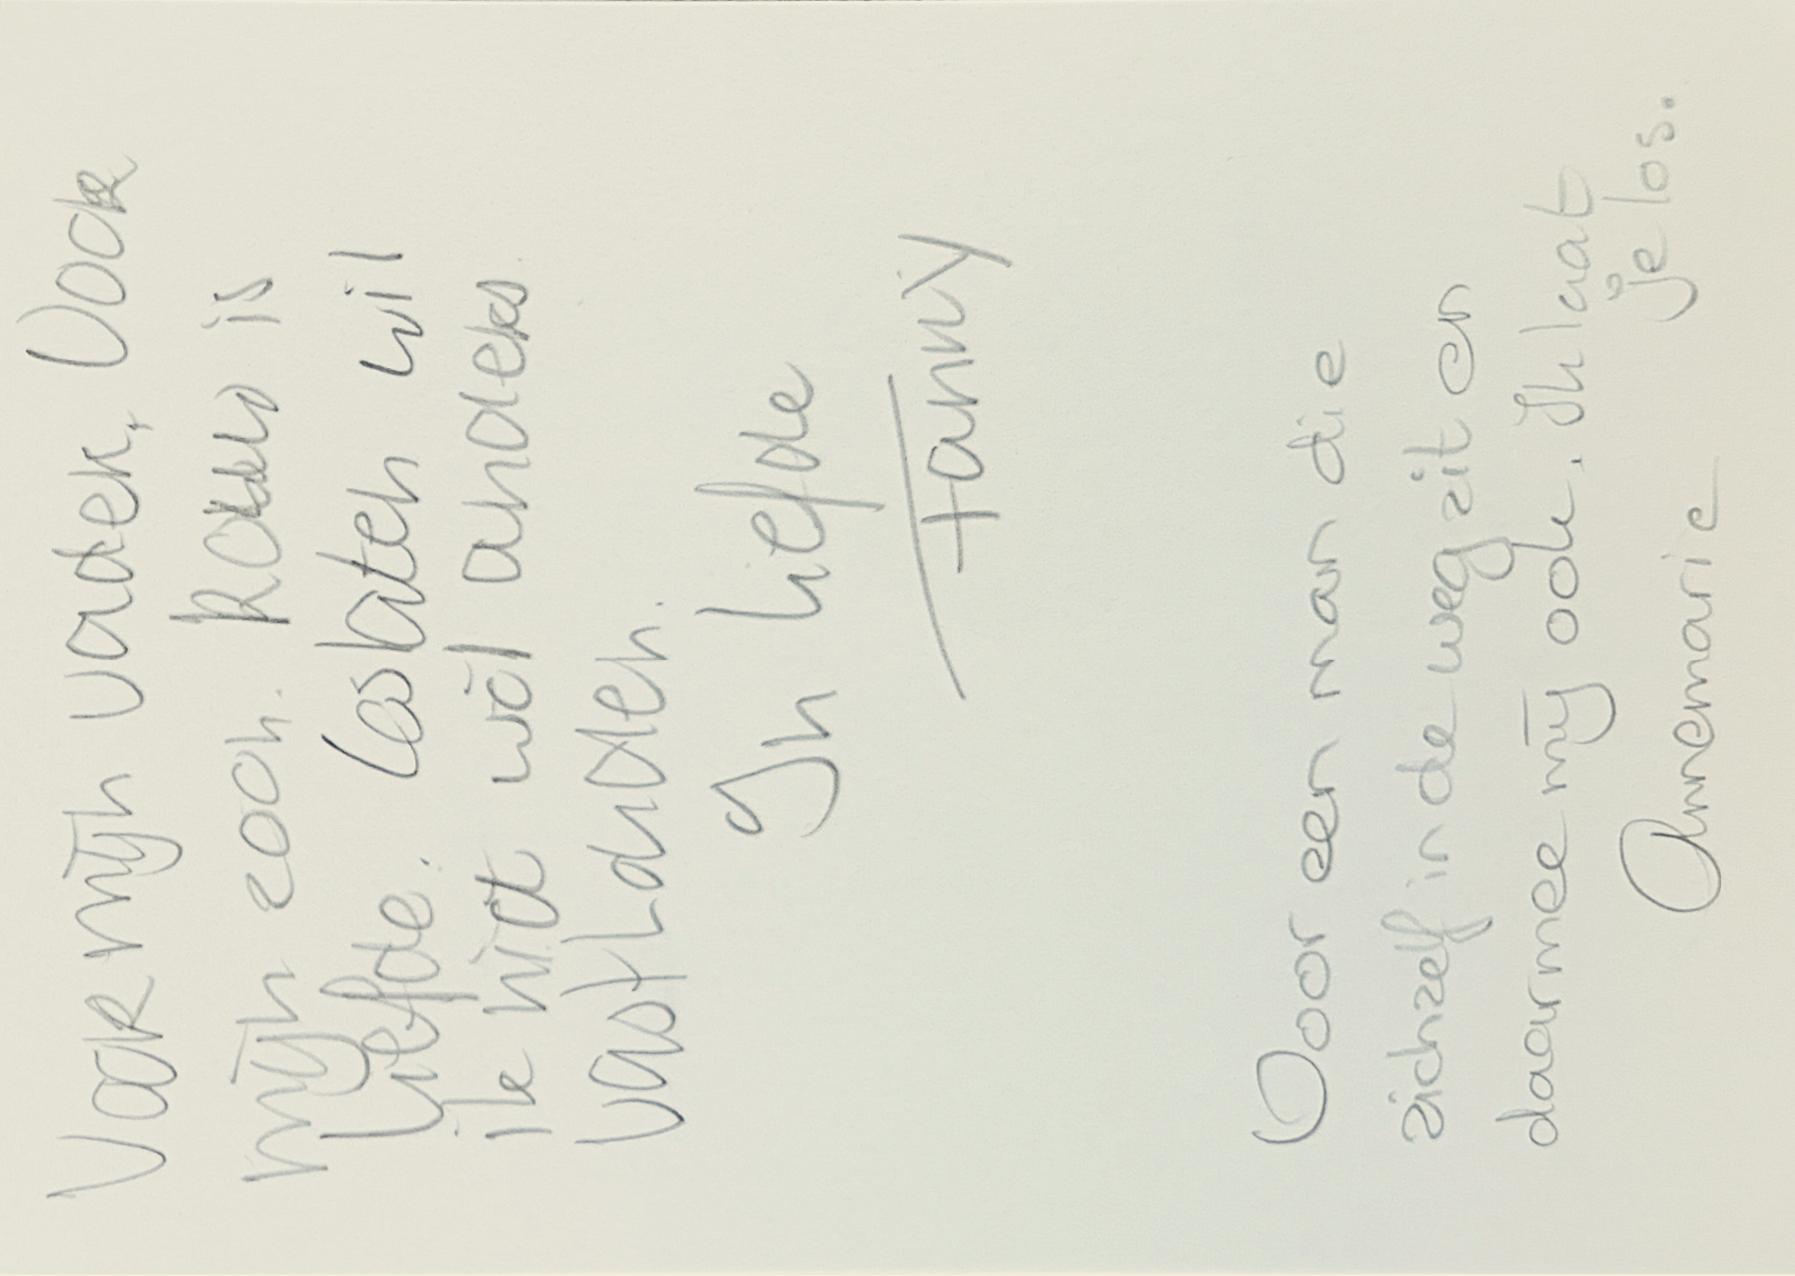 Voor mijn vader, Voor
mijn zoon. Rouw is
Liefde. Loslaten wil
ik niet wel anders
vasthouden.
In liefde
Fanny
Voor een man die
zichzelf in de weg zit en
daarmee mij ook. Ik laat
je los.
Annemarie